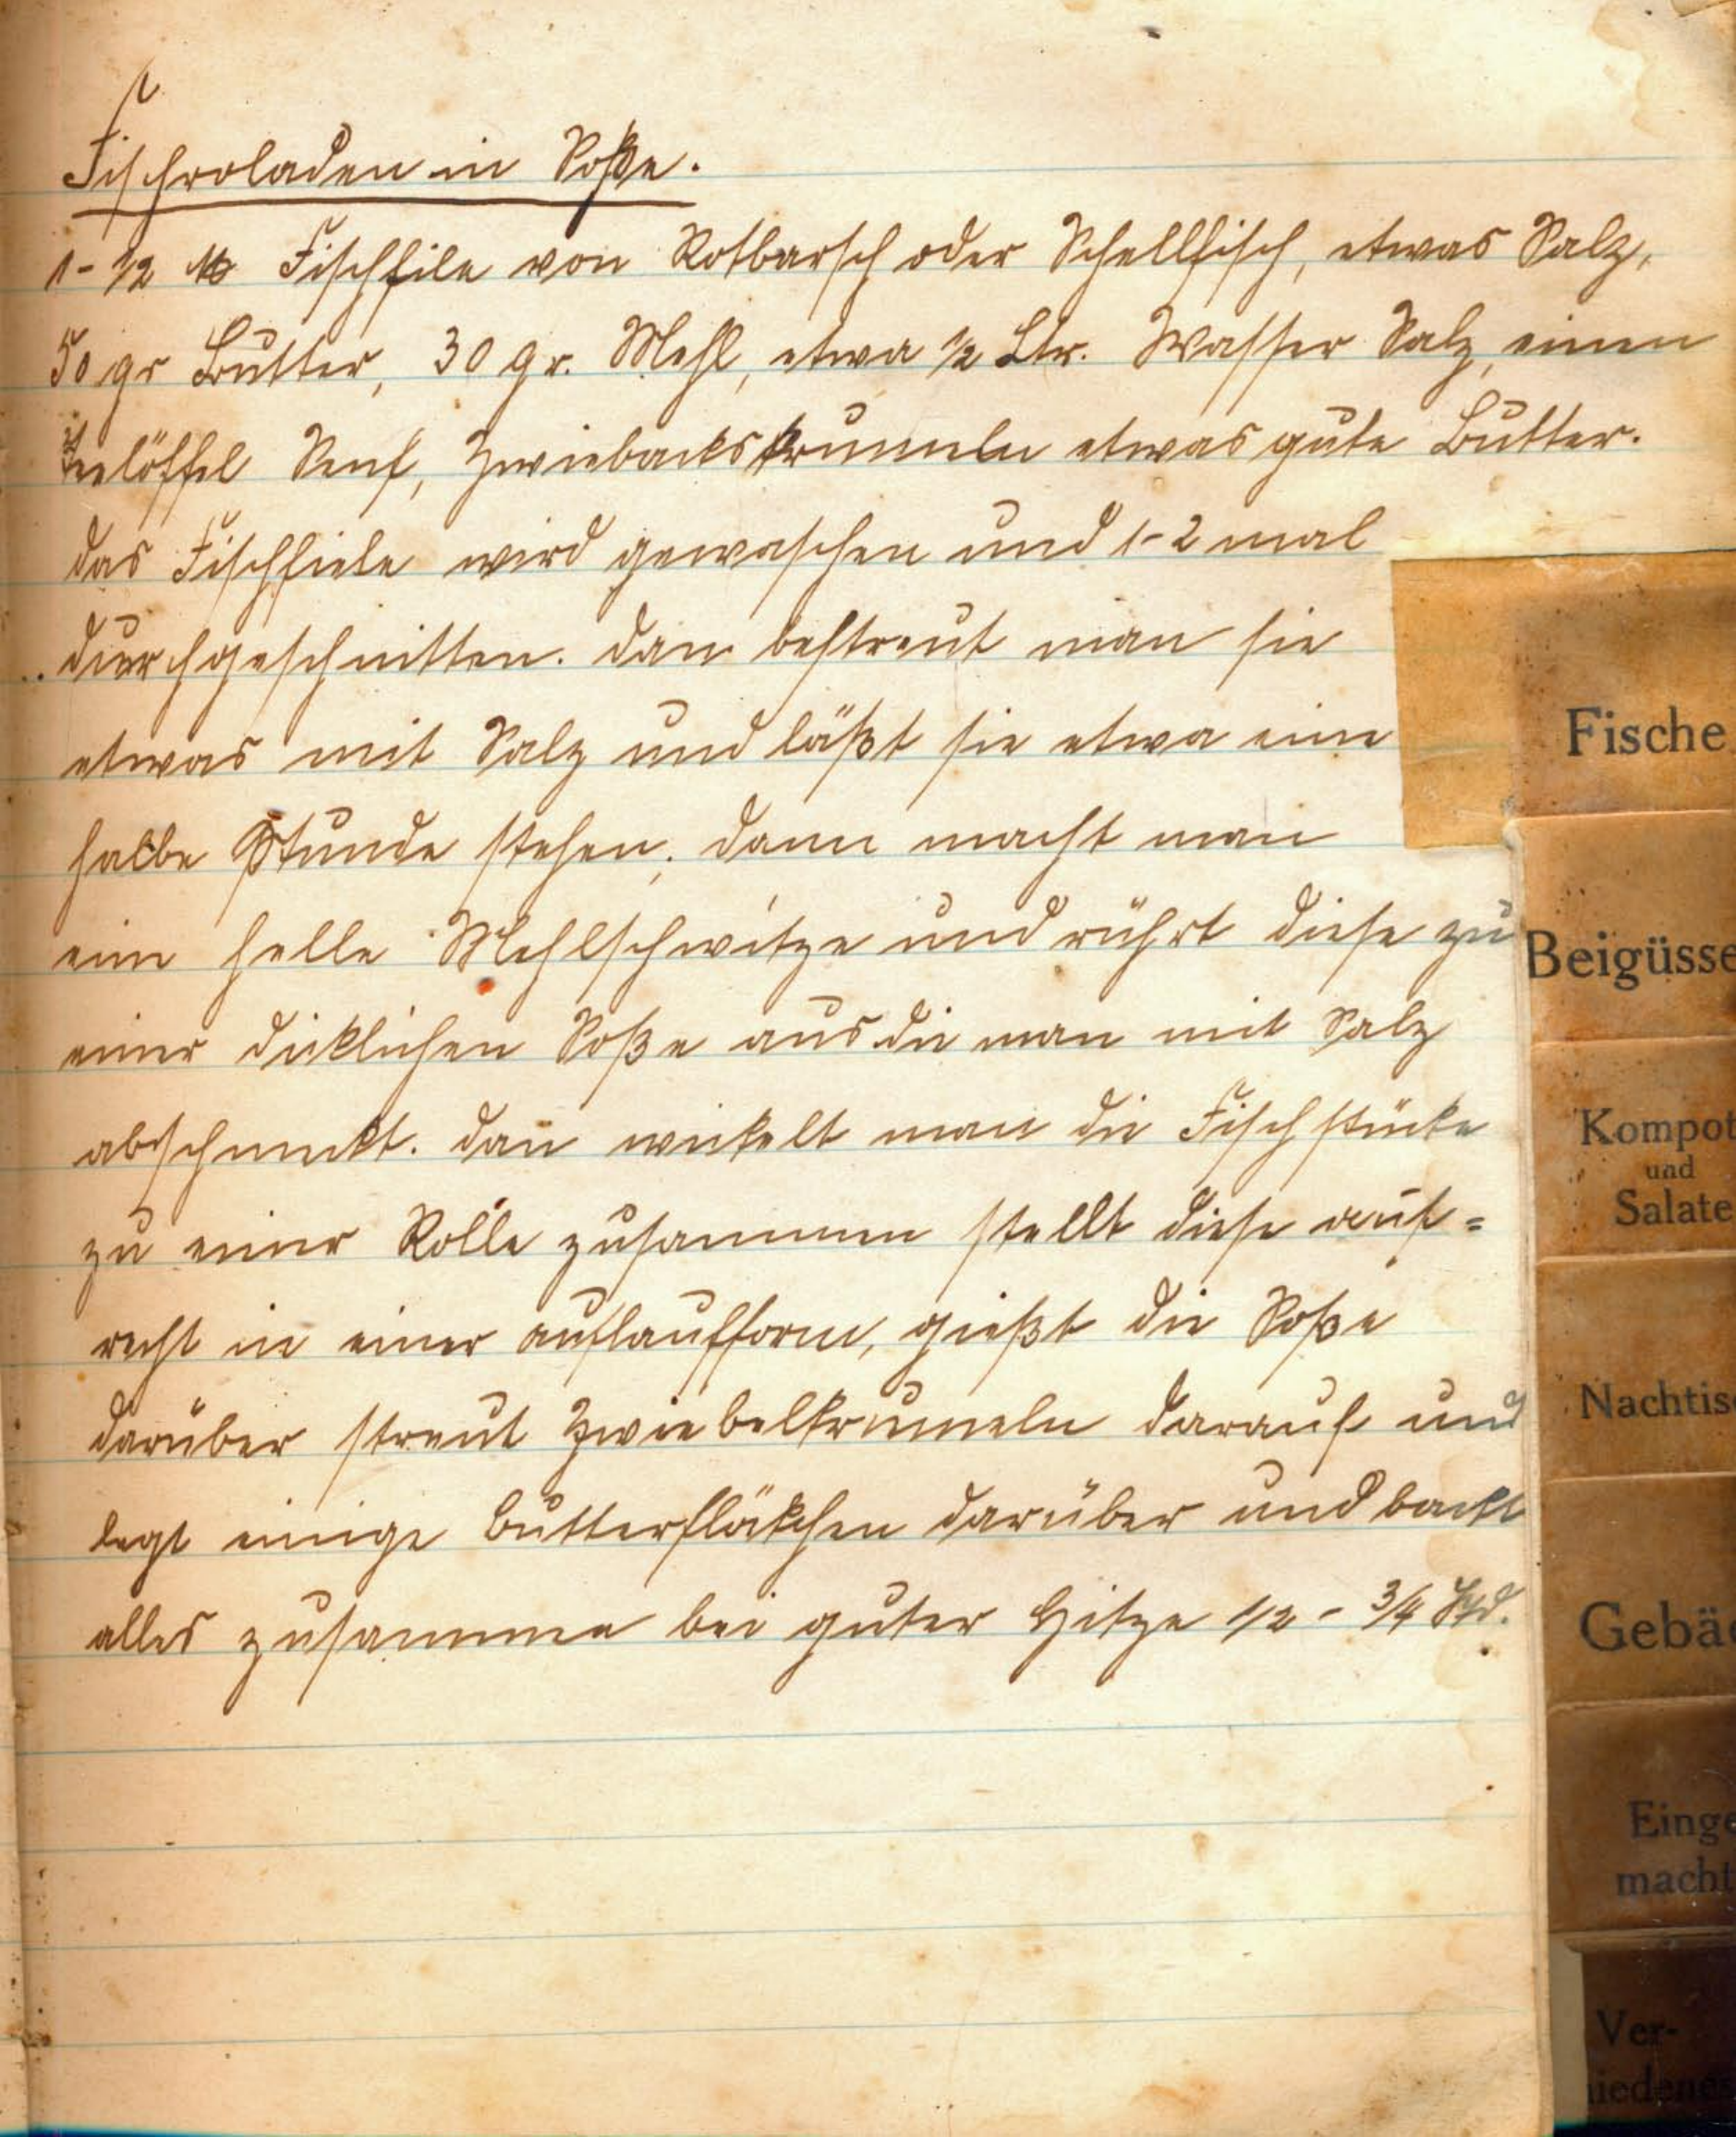 Fischroladen in Soße.
1-1/2 ℔ Fischfile von Rotbarsch oder Schellfisch, etwas Salz,
50 gr Butter, 30 gr. Mehl, etwa 1/2 Ltr. Wasser Salz, einen
Teelöffel Senf, Zwiebackskrumeln etwas gute Butter.
das Fischfiele wird gewaschen und 1-2 mal
durchgeschnitten. dan bestreut man sie
etwas mit Salz und läßt sie etwa eine
halbe Stunde stehen, dann macht man
eine helle Mehlschwitze und rührt diese zu
einer dicklichen Soße aus die man mit Salz
abschmekt. dan̄ wickelt man die Fischstücke
zu einer Rolle zusammen stellt diese auf=
recht in einer auflaufform, gießt die Soße
darüber streut Zwiebelkrumeln darauf und
legt einige Butterfläkchen darüber und backt
alles zusamme bei guter Hitze 1/2 - 3/4 Std.
Fische
Beigüsse
Kompot
und
Salate
Nachtis
Gebäc
Einge
macht
Ver-
iedenes